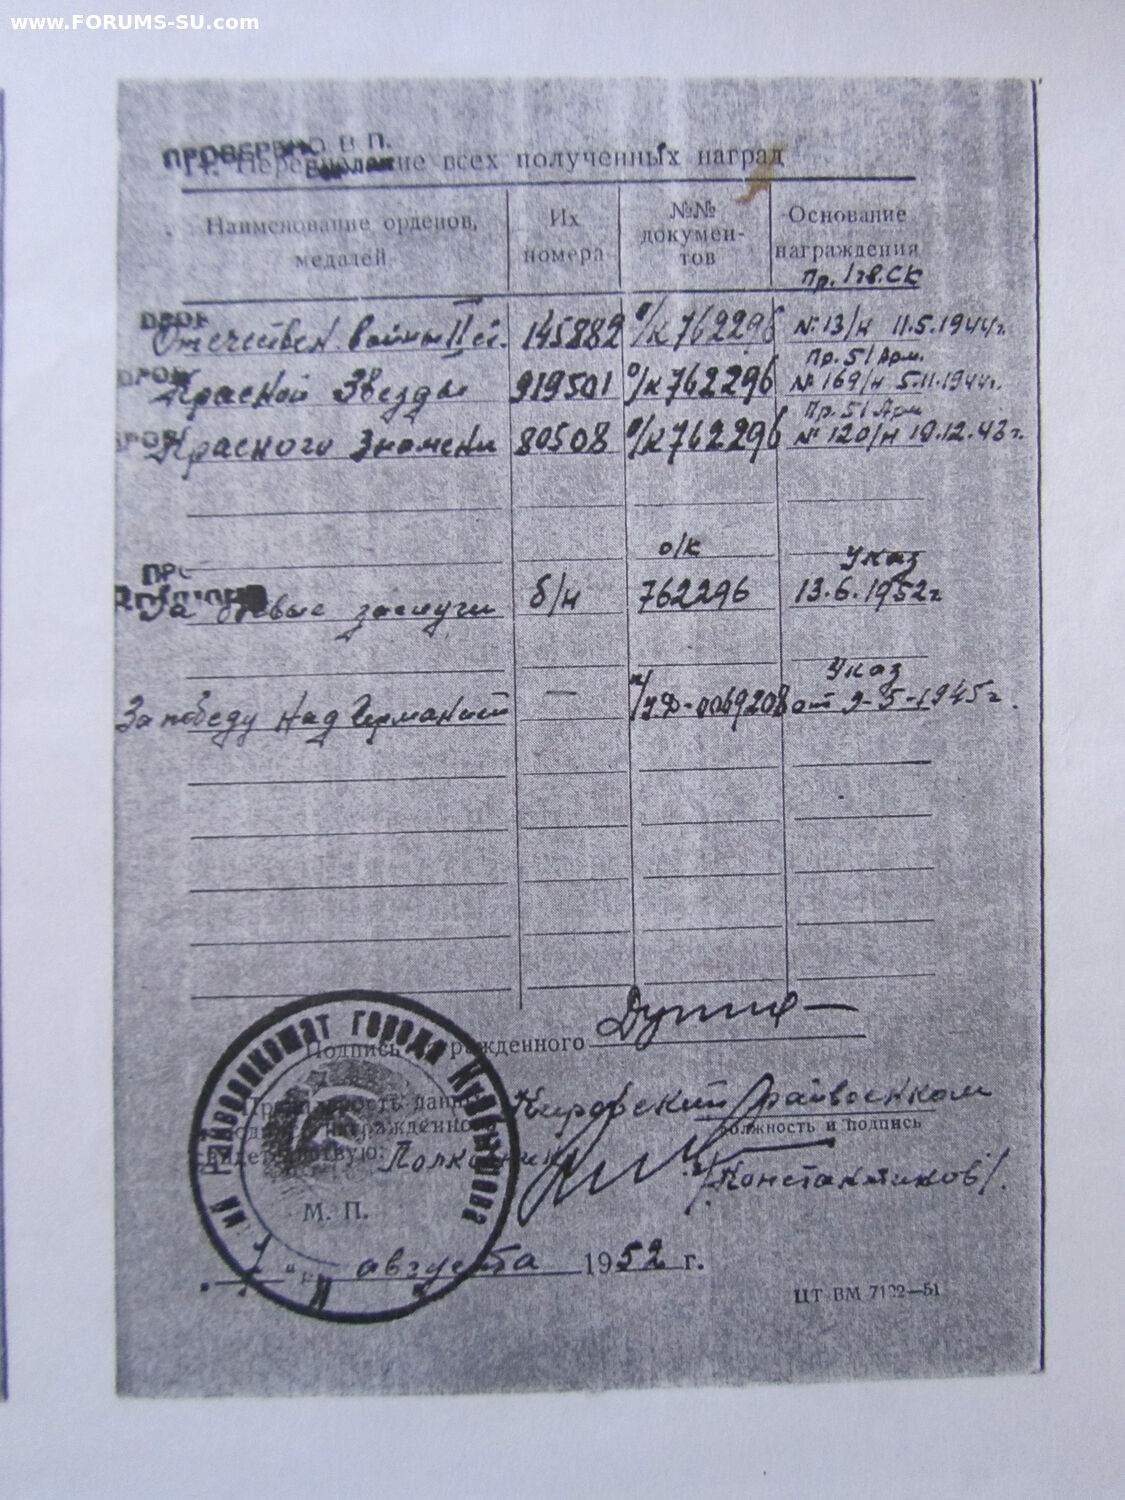 www.FORUMS-SU.com
ПРОВЕРЕНО В П.
14. Перечисление всех полученных наград
Наименование орденов, медалей
Их номера
№№ докумен-тов
Основание награждения
Пр. 1 гв. СК
Отечествен. войны II ст. 145882 о/к 762296 № 13/н 11.5.1944г.
Пр. 51 Арм.
Красной Звезды 919501 о/к 762296 № 169/н 5.11.1944г.
Пр. 51 Арм
Красного Знамени 80508 о/к 762296 № 120/н 19.12.43г.
о/к Указ
За боевые заслуги б/н 762296 13.6.1952г
Указ
За победу над Германией — 0069208 от 9-5-1945г.
Подпись награжденного
Кировский райвоенком
должность и подпись
Полковник
/Константинов/.
М. П.
августа 1952 г.
РАЙВОЕНКОМАТ ГОРОДА КУЙБЫШЕВА
ЦТ ВМ 7122—51